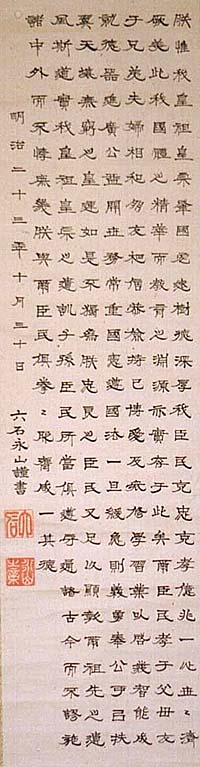 朕惟我皇祖皇宗肇國宏遠樹德深厚我臣民克忠克孝億兆一心世〻濟
厥美此我國體之精華而教育之淵源亦實存于此矣爾臣民孝于父母友
于兄弟夫婦相和朋友相信恭儉持己博愛及衆修學習業以啓發智能成
就德器進廣公益開世務常重國憲遵國法一旦緩急則義勇奉公可以扶
翼天壤無窮之皇運如是不獨爲朕忠良之臣民又足以顯彰爾祖先之遺
風斯道實我皇祖皇宗之遺訓子孫臣民所當俱遵守通諸古今而不謬施
諸中外而不悖庶幾朕與爾臣民俱拳〻服膺咸一其德
明治二十三年十月三十日
六石永山謹書